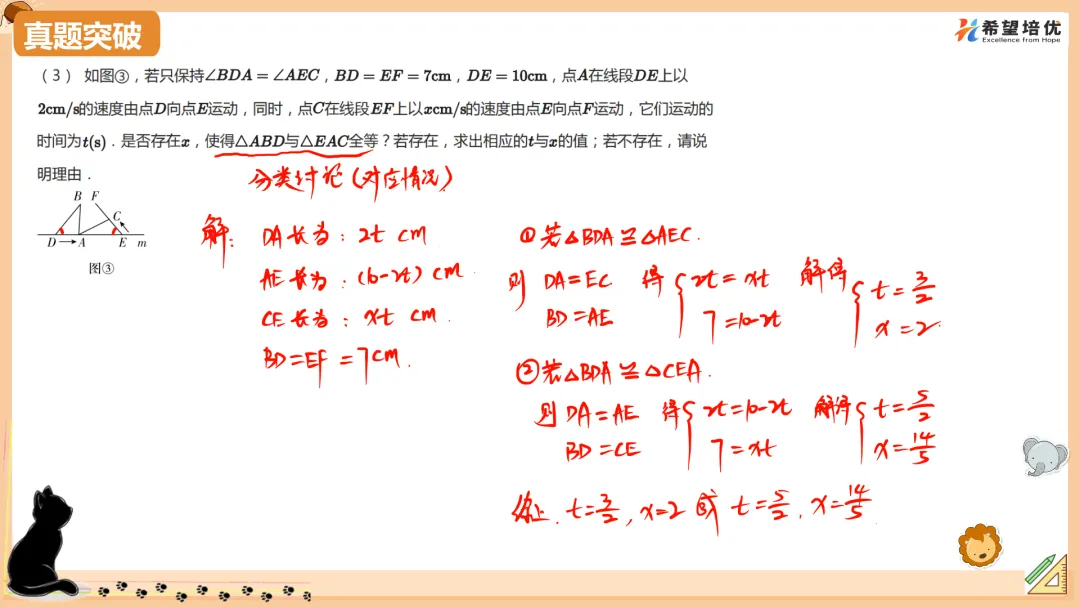 真题突破
希望培优
Excellence from Hope
（3） 如图③，若只保持∠BDA = ∠AEC，BD = EF = 7cm，DE = 10cm，点A在线段DE上以
2cm/s的速度由点D向点E运动，同时，点C在线段EF上以xcm/s的速度由点E向点F运动，它们运动的
时间为t(s)．是否存在x，使得△ABD与△EAC全等？若存在，求出相应的t与x的值；若不存在，请说
明理由．
分类讨论（对应情况）
B F
C
D A E m
图③
解：DA长为：2t cm
AE长为：(10-2t) cm.
CE长为：xt cm.
BD=EF=7cm.
①若△BDA≌△AEC.
则 DA=EC 得 { 2t=xt 解得 { t=3/2
BD=AE 7=10-2t x=2.
②若△BDA≌△CEA.
则 DA=AE 得 { 2t=10-2t 解得 { t=5/2
BD=CE 7=xt x=14/5
综上. t=3/2, x=2 或 t=5/2, x=14/5.